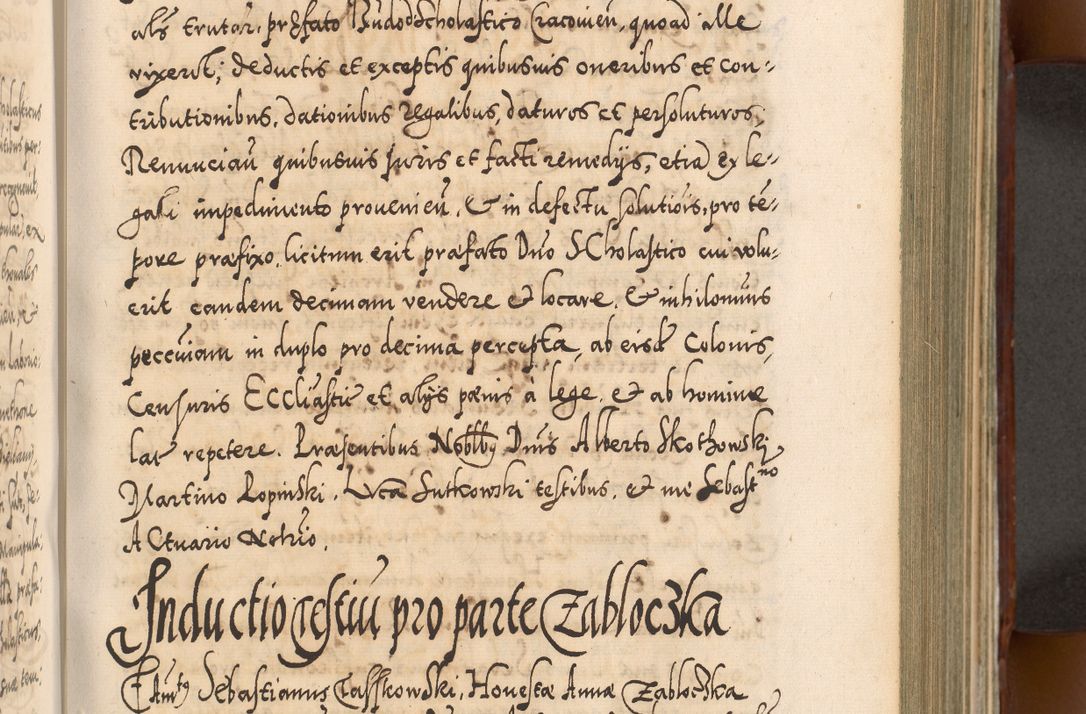 als trutar, præfato Rndo Scholastico Cracovien, quoad ille
vixerit; deductis et exceptis quibusuis oneribus et con-
tributionibus, dationibus regalibus, daturos et persoluturos,
Renunciaũ quibusuis juris et facti remedijs, etiã ex le-
gali impedimento provenieñ, & in defectu solutiõis, pro tē-
pore præfixo, licitum erit præfato Dño SCholastico cui volu-
erit eandem decimam vendere et locare, & nihilominus
pecuniam in duplo pro decima percepta, ab eisd Colonis,
Censuris Ecclïastic et alijs pœnis à lege, et ab homine
lat repetere. Præsentibus Nobllbq Dnis Alberto Skothowski,
Martino Lopinski, Luca Sutkowski testibus, et me Sebast no
ACtuario Notrio.
Inductio testiũ pro parte Zabloczka
Famtq Sebastianus Casskowski, Honesta Anna Zabloczka